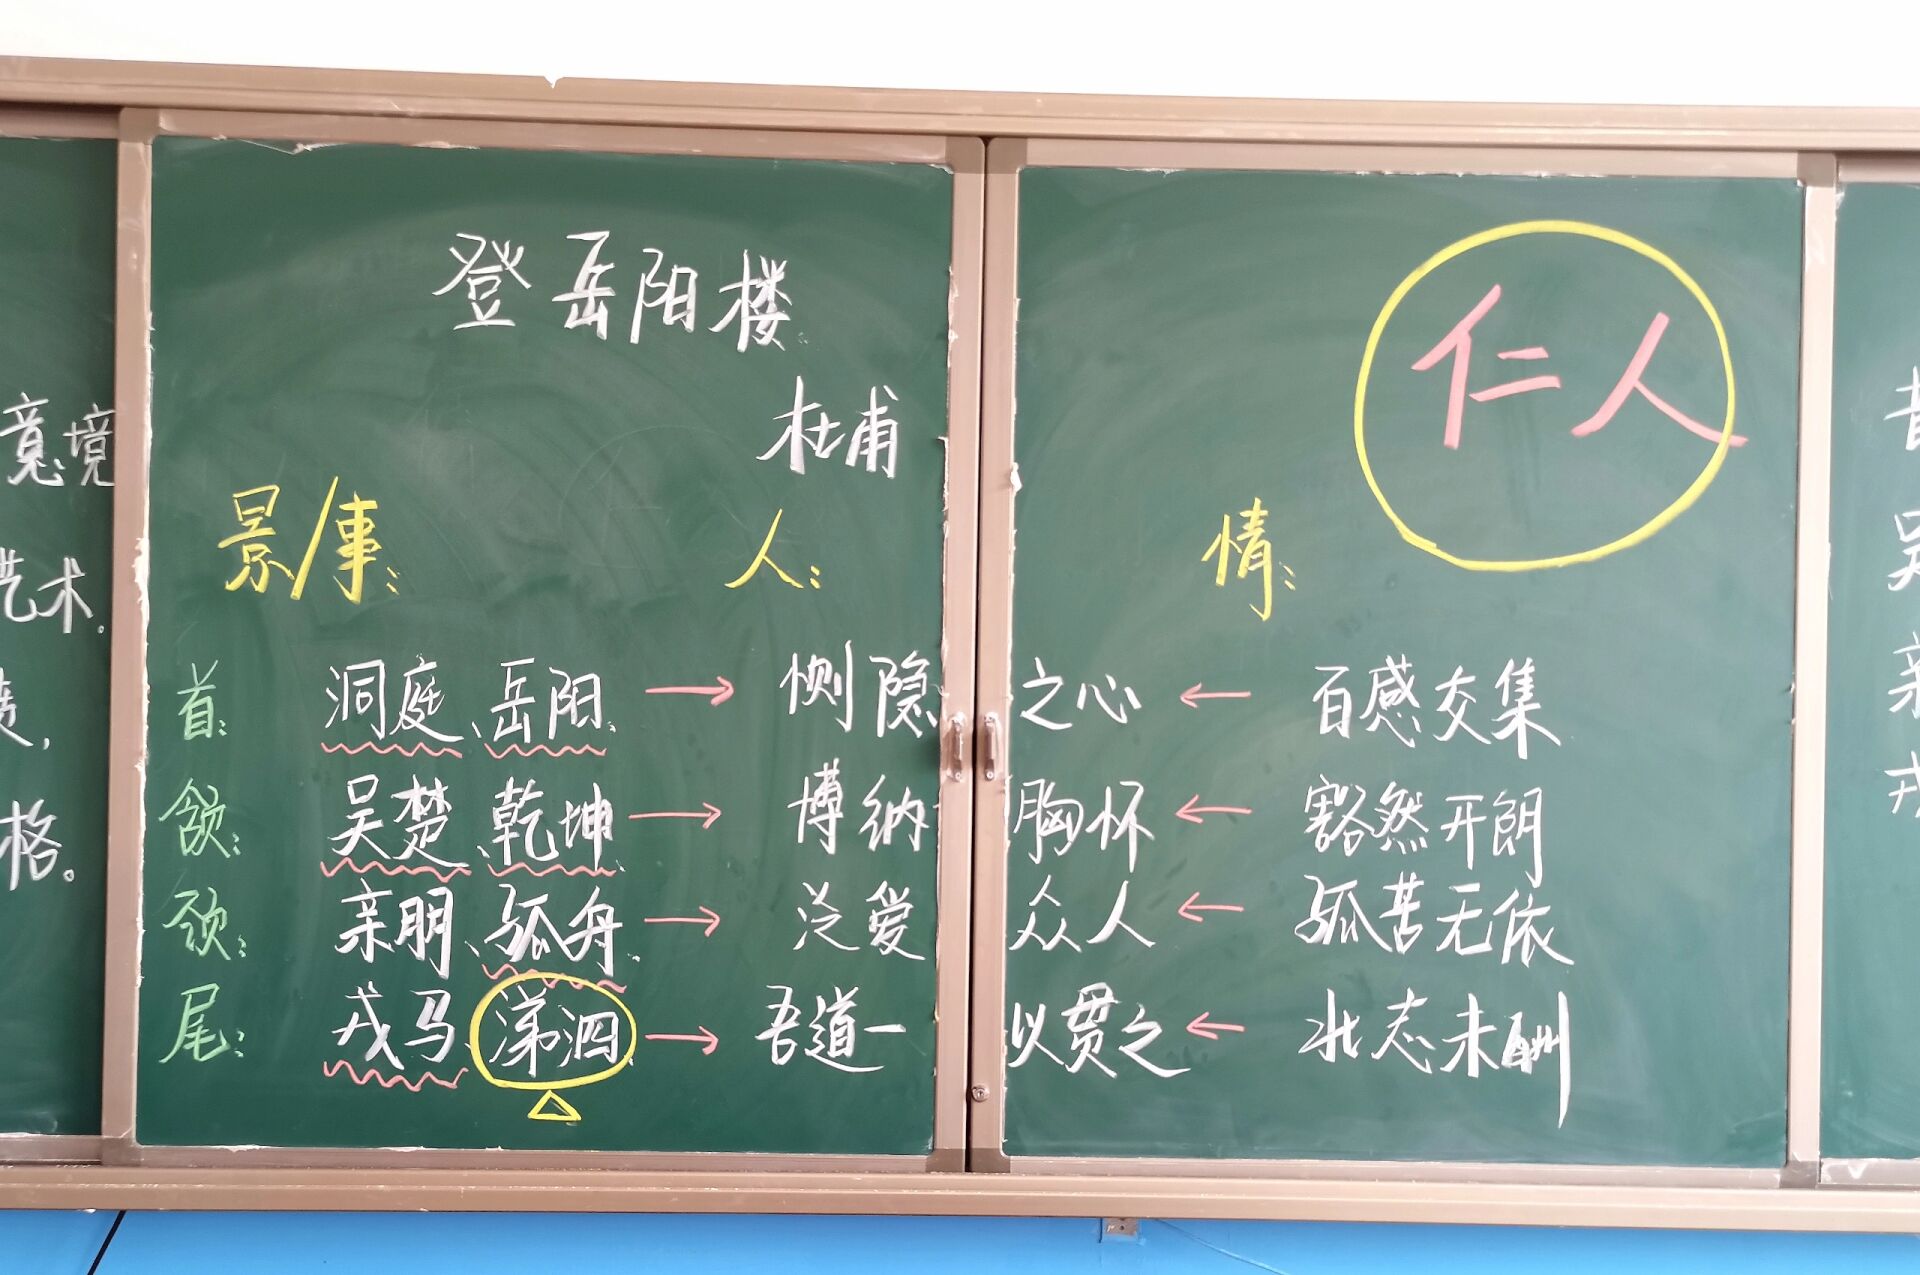 登岳阳楼
杜甫
仁人
景/事: 人: 情:
首: 洞庭、岳阳、 → 恻隐之心 ← 百感交集
颔: 吴楚、乾坤 → 博纳胸怀 ← 豁然开朗
颈: 亲朋、孤舟、 → 泛爱众人 ← 孤苦无依
尾: 戎马、涕泗、 → 吾道一以贯之 ← 壮志未酬
意境
艺术.
格。
昔
吴
亲
戎